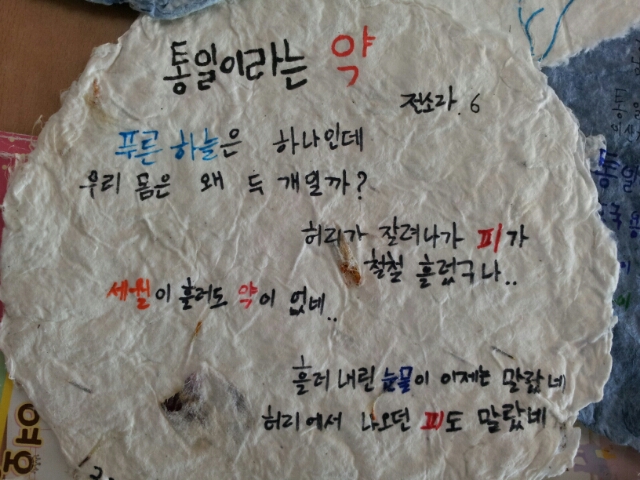 통일이라는 약
전소라. 6
푸른 하늘은 하나인데
우리 몸은 왜 두 개일까?
허리가 잘려나가 피가
철철 흘렀구나..
세월이 흘러도 약이 없네..
흘러 내린 눈물이 이제는 말랐네
허리에서 나오던 피도 말랐네
여우
통일